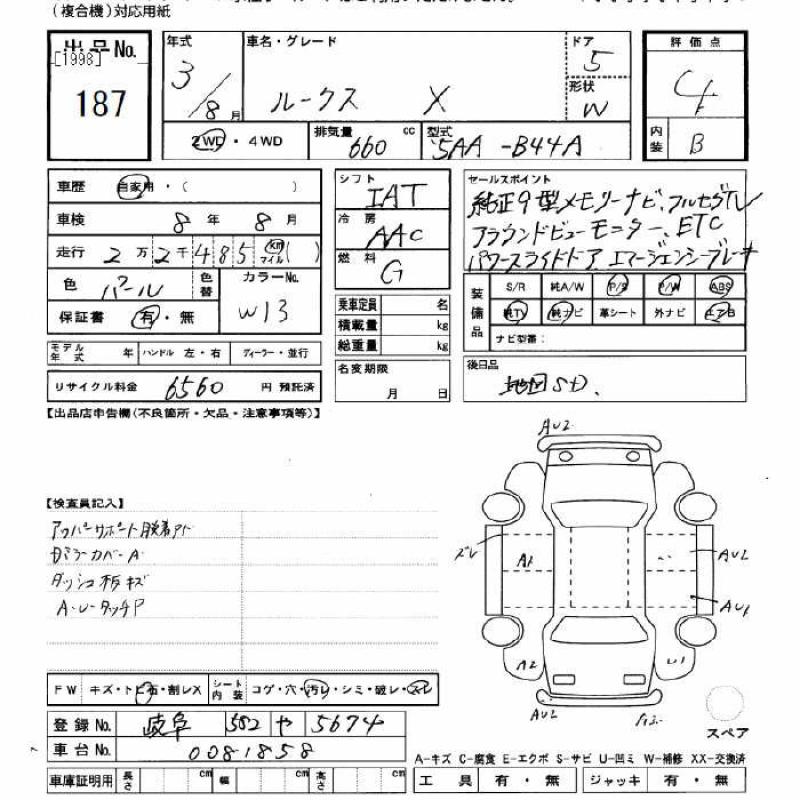 (複合機)対応用紙
出品No.
[1998]
187
年式
3/8月
車名・グレード
ルークス X
ドア
5
形状
W
評価点
4
内装 B
2WD・4WD
排気量 660 cc
型式 5AA-B44A
車歴 自家用・( )
車検 8年 8月
走行 2万2千485 km マイル ( )
色 パール
色替
カラーNo.
W13
保証書 有・無
シフト
IAT
冷房
AAC
燃料
G
乗車定員 名
積載量 kg
総重量 kg
セールスポイント
純正9型メモリーナビ、フルセグTV
アラウンドビューモニター、ETC
パワースライドドア、エマージェンシーブレーキ
装備品
S/R 純A/W P/S P/W ABS
純TV 純ナビ 革シート 外ナビ エアB
ナビ型番:
モデル年式 年 ハンドル 左・右 ディーラー・並行
リサイクル料金 6560 円 預託済
名変期限
月 日
後日品
地図SD.
【出品店申告欄(不良箇所・欠品・注意事項等)】
【検査員記入】
Dミラーカバー A
ダッシュ板キズ
A・U・タッチP
AU2
ズレ
A1
AU2
AU1
A2
U1
AU2
スペア
FW キズ・トビ石・割レX
シート内装 コゲ・穴・汚レ・シミ・破レ・スレ
登録No. 岐阜 582 や 5674
車台No. 0081858
A-キズ C-腐食 E-エクボ S-サビ U-凹ミ W-補修 XX-交換済
車庫証明用 長さ cm 幅 cm 高さ cm
工具 有・無 ジャッキ 有・無